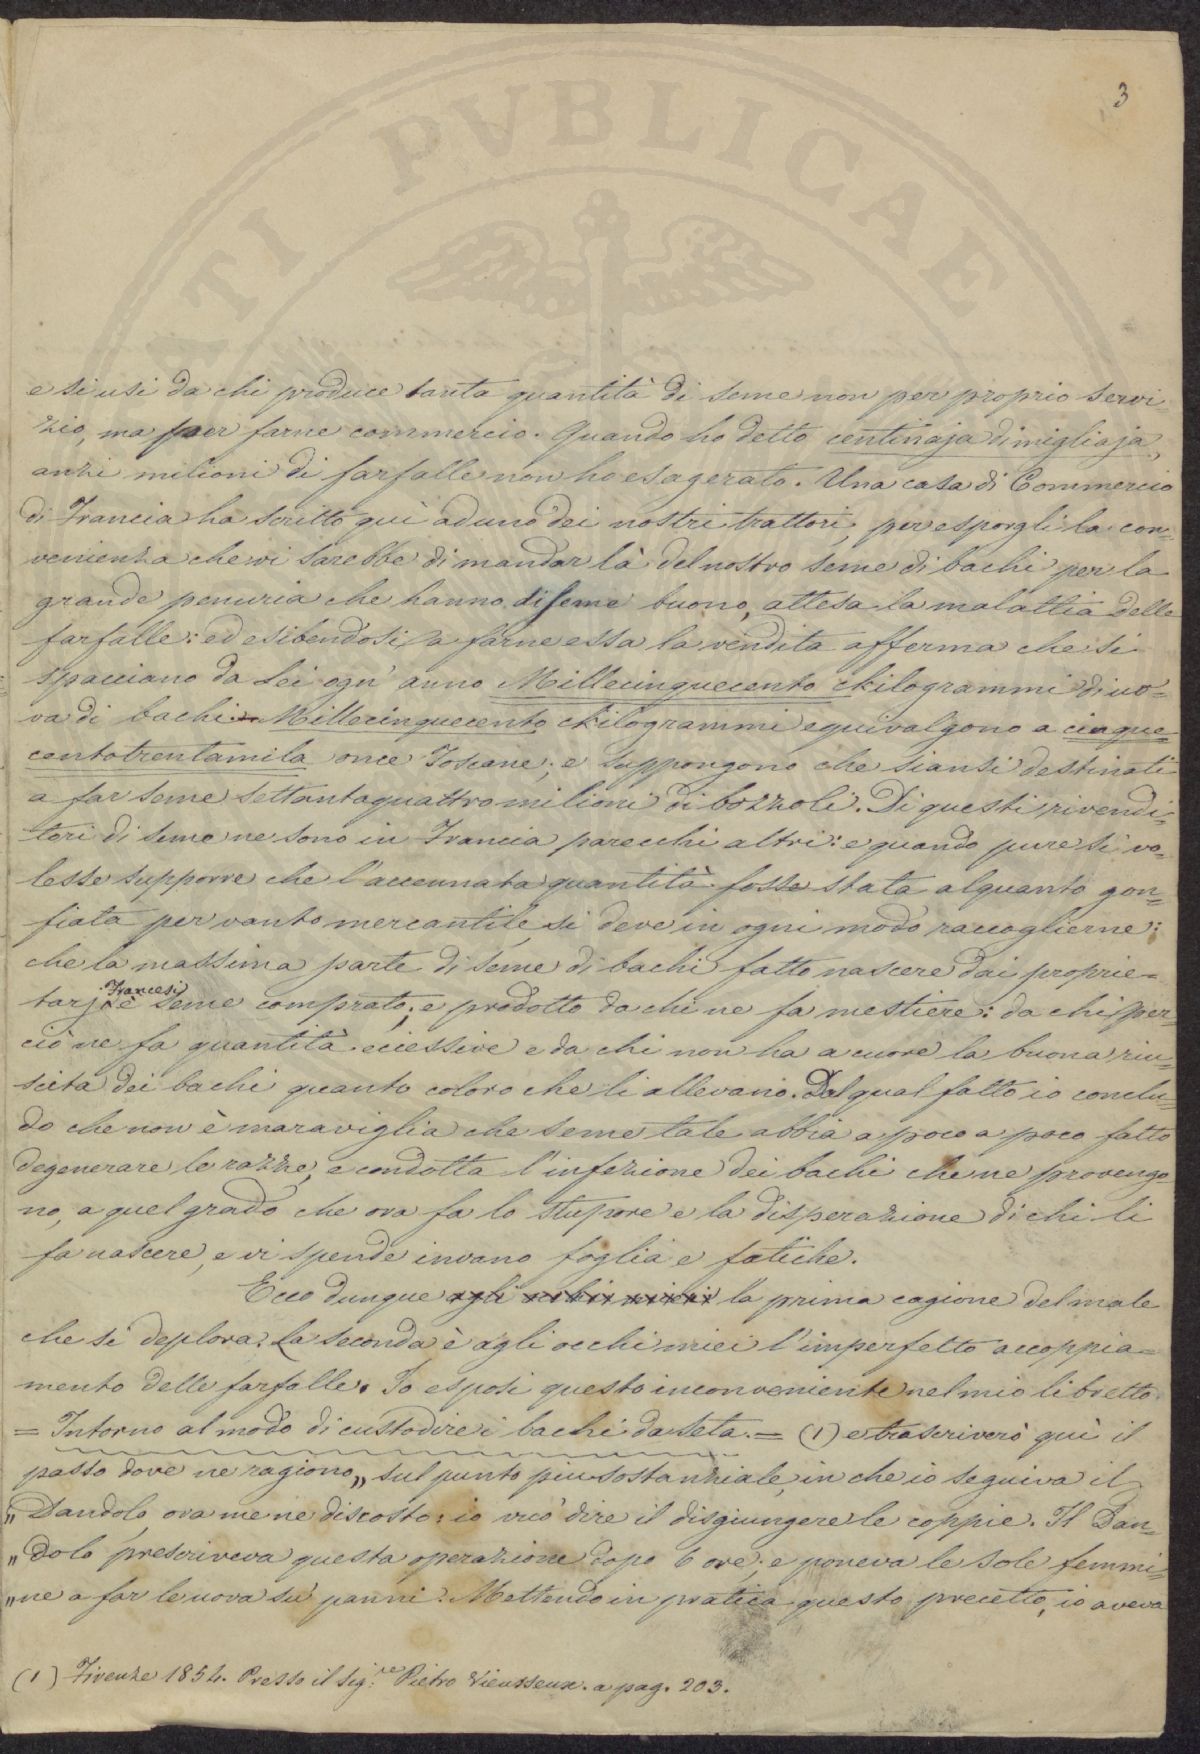 3
e si usi da chi produce tanta quantità di seme non per proprio servi-
zio, ma per farne commercio. Quando ho detto centinaja di migliaja,
anzi milioni di farfalle non ho esagerato. Una casa di Commercio
di Francia ha scritto quì ad uno dei nostri trattori, per esporgli la con-
venienza che vi sarebbe di mandar là del nostro seme di bachi per la
grande penuria che hanno di seme buono, attesa la malattia delle
farfalle: ed esibendosi a farne essa la vendita afferma che si
spacciano da Lei ogn' anno Millecinquecento chilogrammi di uo-
va di bachi. Millecinquecento chilogrammi equivalgono a cinque-
centotrentamila once Toscane; e suppongono che siansi destinati
a far seme settantaquattro milioni di bozzoli. Di questi rivendi-
tori di seme ne sono in Francia parecchi altri: e quando pure si vo-
lesse supporre che l'accennata quantità fosse stata alquanto gon-
fiata per vanto mercantile, si deve in ogni modo raccoglierne:
che la massima parte di seme di bachi fatto nascere dai proprie-
tarj Francesi è seme comprato; e prodotto da chi ne fa mestiere: da chi per-
ciò ne fa quantità eccessive e da chi non ha a cuore la buona riu-
scita dei bachi quanto coloro che li allevano. Dal qual fatto io conclu-
do che non è maraviglia che seme tale abbia a poco a poco fatto
degenerare le razze, e condotta l'infezione dei bachi che ne provengo
no, a quel grado che ora fa lo stupore e la disperazione di chi li
fa nascere, e vi spende invano foglia e fatiche.
Ecco dunque agli occhi miei la prima cagione del male
che si deplora. La seconda è agli occhi miei l'imperfetto accoppia-
mento delle farfalle. Io esposi questo inconveniente nel mio libretto
= Intorno al modo di custodire i bachi da seta. = (1) e trascriverò quì il
passo dove ne ragiono „ sul punto più sostanziale, in che io seguiva il
„ Dandolo, ora me ne discosto: io vuo' dire il disgiungere le coppie. Il Dan-
„ dolo prescriveva questa operazione dopo 6 ore; e poneva le sole femmi-
„ ne a far le uova su' panni. Mettendo in pratica questo precetto, io aveva
(1) Firenze 1854. Presso il Sig.re Pietro Vieusseux. a pag. 203.